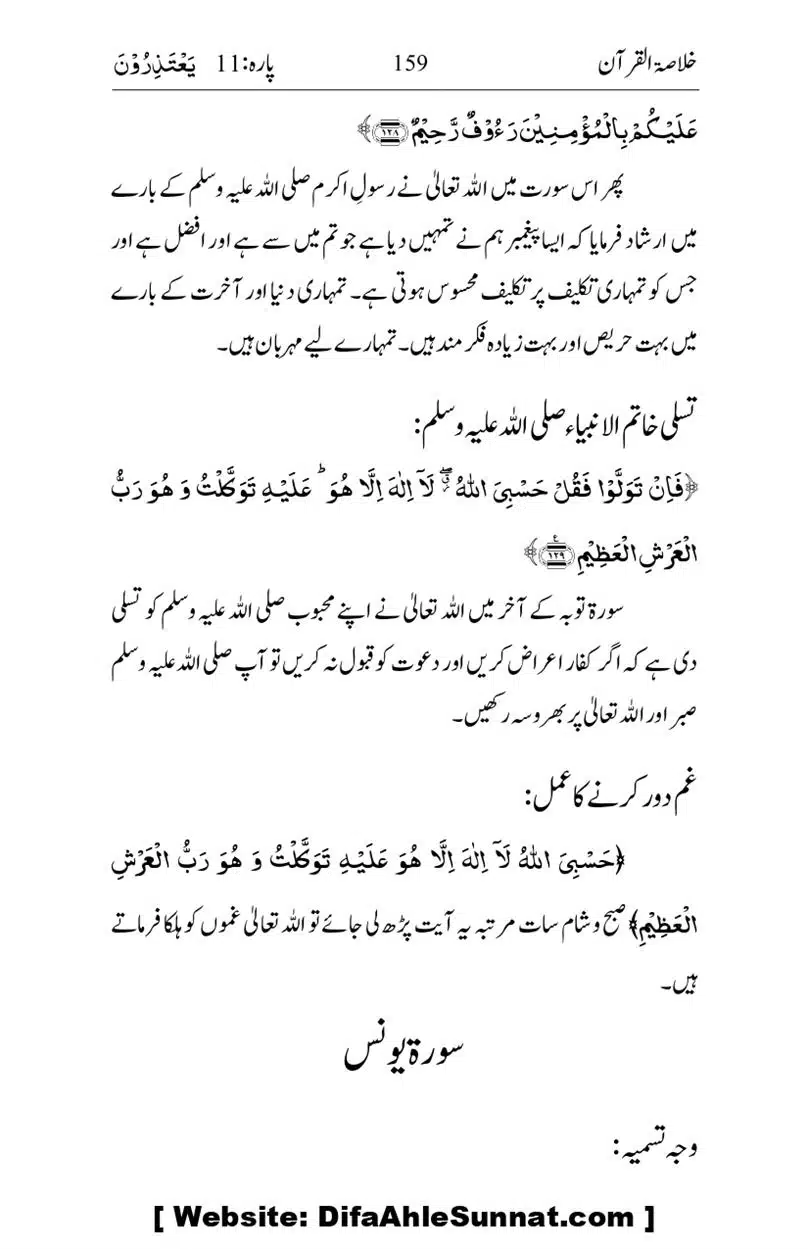 خلاصۃ القرآن 159 پارہ:11 يَعْتَذِرُوْنَ
عَلَيْكُمْ بِالْمُؤْمِنِيْنَ رَءُوْفٌ رَّحِيْمٌ ﴿۱۲۸﴾
پھر اس سورت میں اللہ تعالیٰ نے رسولِ اکرم صلی اللہ علیہ وسلم کے بارے
میں ارشاد فرمایا کہ ایسا پیغمبر ہم نے تمہیں دیا ہے جو تم میں سے ہے اور افضل ہے اور
جس کو تمہاری تکلیف پر تکلیف محسوس ہوتی ہے۔ تمہاری دنیا اور آخرت کے بارے
میں بہت حریص اور بہت زیادہ فکر مند ہیں۔ تمہارے لیے مہربان ہیں۔
تسلی خاتم الانبیاء صلی اللہ علیہ وسلم:
﴿فَاِنْ تَوَلَّوْا فَقُلْ حَسْبِيَ اللهُ ۖ٘ لَاۤ اِلٰهَ اِلَّا هُوَ ؕ عَلَيْهِ تَوَكَّلْتُ وَ هُوَ رَبُّ
الْعَرْشِ الْعَظِيْمِ ﴿۱۲۹﴾
سورۃ توبہ کے آخر میں اللہ تعالیٰ نے اپنے محبوب صلی اللہ علیہ وسلم کو تسلی
دی ہے کہ اگر کفار اعراض کریں اور دعوت کو قبول نہ کریں تو آپ صلی اللہ علیہ وسلم
صبر اور اللہ تعالیٰ پر بھروسہ رکھیں۔
غم دور کرنے کا عمل:
﴿حَسْبِيَ اللهُ لَاۤ اِلٰهَ اِلَّا هُوَ عَلَيْهِ تَوَكَّلْتُ وَ هُوَ رَبُّ الْعَرْشِ
الْعَظِيْمِ﴾ صبح و شام سات مرتبہ یہ آیت پڑھ لی جائے تو اللہ تعالیٰ غموں کو ہلکا فرماتے
ہیں۔
سورۃ یونس
وجہ تسمیہ:
[ Website: DifaAhleSunnat.com ]